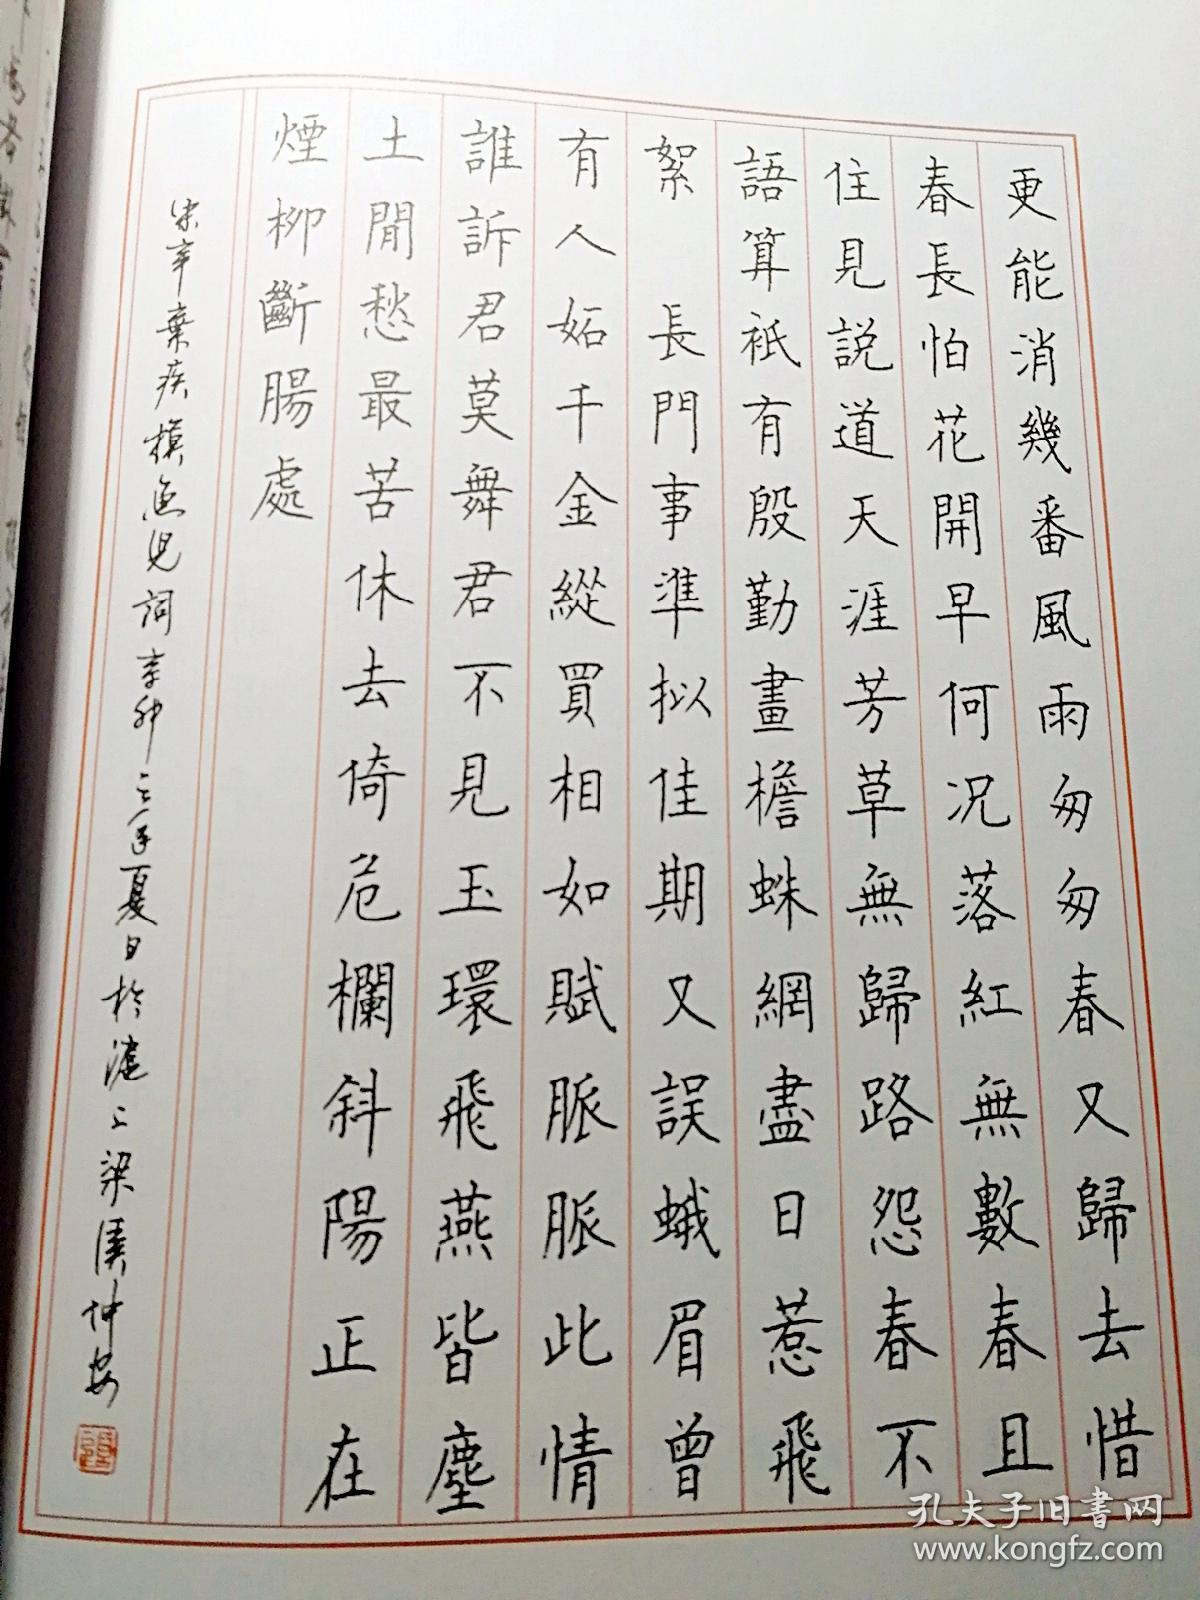 更能消幾番風雨匆匆春又歸去惜
春長怕花開早何况落紅無數春且
住見説道天涯芳草無歸路怨春不
語算衹有殷勤畫檐蛛網盡日惹飛
絮　長門事準擬佳期又誤蛾眉曾
有人妬千金縱買相如賦脈脈此情
誰訴君莫舞君不見玉環飛燕皆塵
土閒愁最苦休去倚危欄斜陽正在
煙柳斷腸處
宋辛棄疾摸魚兒詞辛卯年夏日於滬上梁溪仲安
孔夫子旧书网
www.kongfz.com